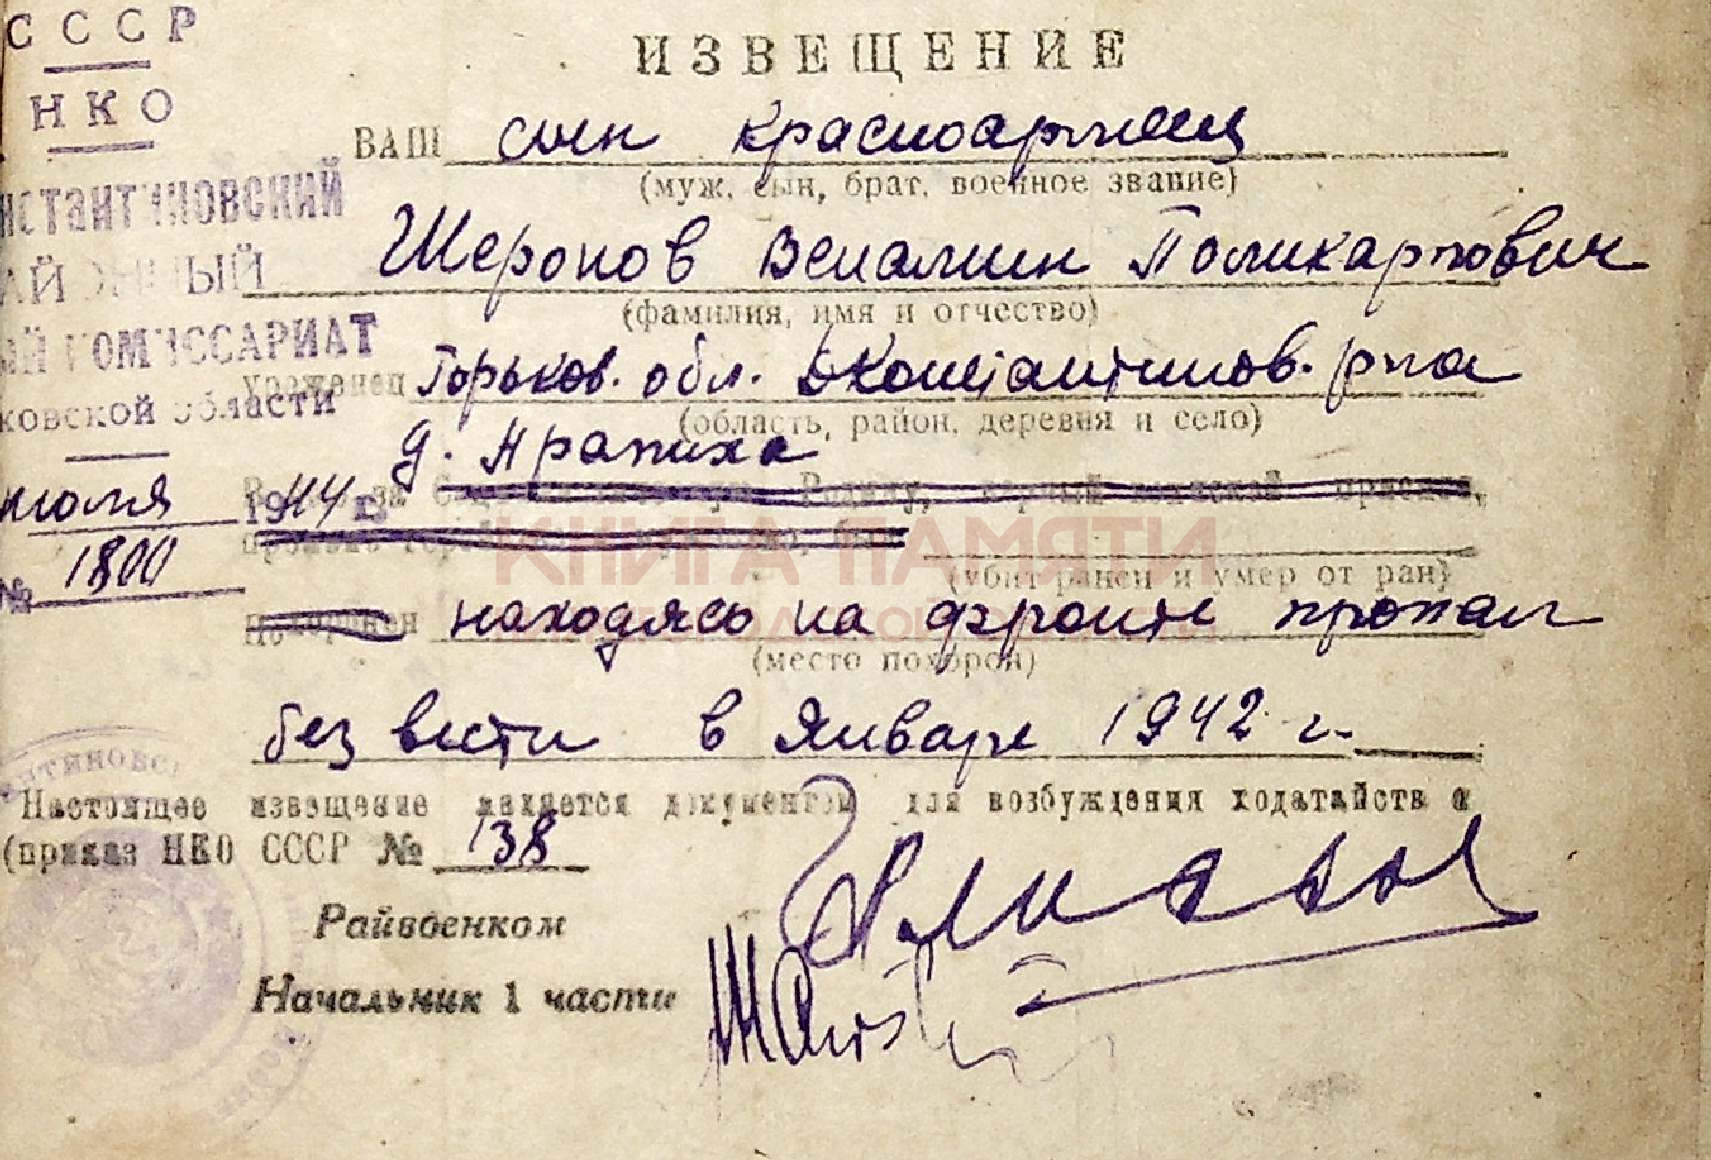 СССР
НКО
нстантиновский
АЙ ННЫЙ
ИЙ КОМИССАРИАТ
ковской области
июля 1944 г.
№ 1800
ИЗВЕЩЕНИЕ
ВАШ сын красноармеец
(муж, сын, брат, военное звание)
Шеронов Вениамин Поликарпович
(фамилия, имя и отчество)
уроженец Горьков. обл. Константинов. р-на
(область, район, деревня и село)
д.
за Родину,
(убит ранен и умер от ран)
находясь на фронте пропал
(место похорон)
без вести в Январе 1942 г.
Настоящее извещение является документом для возбуждения ходатайств о
(приказ НКО СССР № 138
Райвоенком
Начальник 1 части
КНИГА ПАМЯТИ